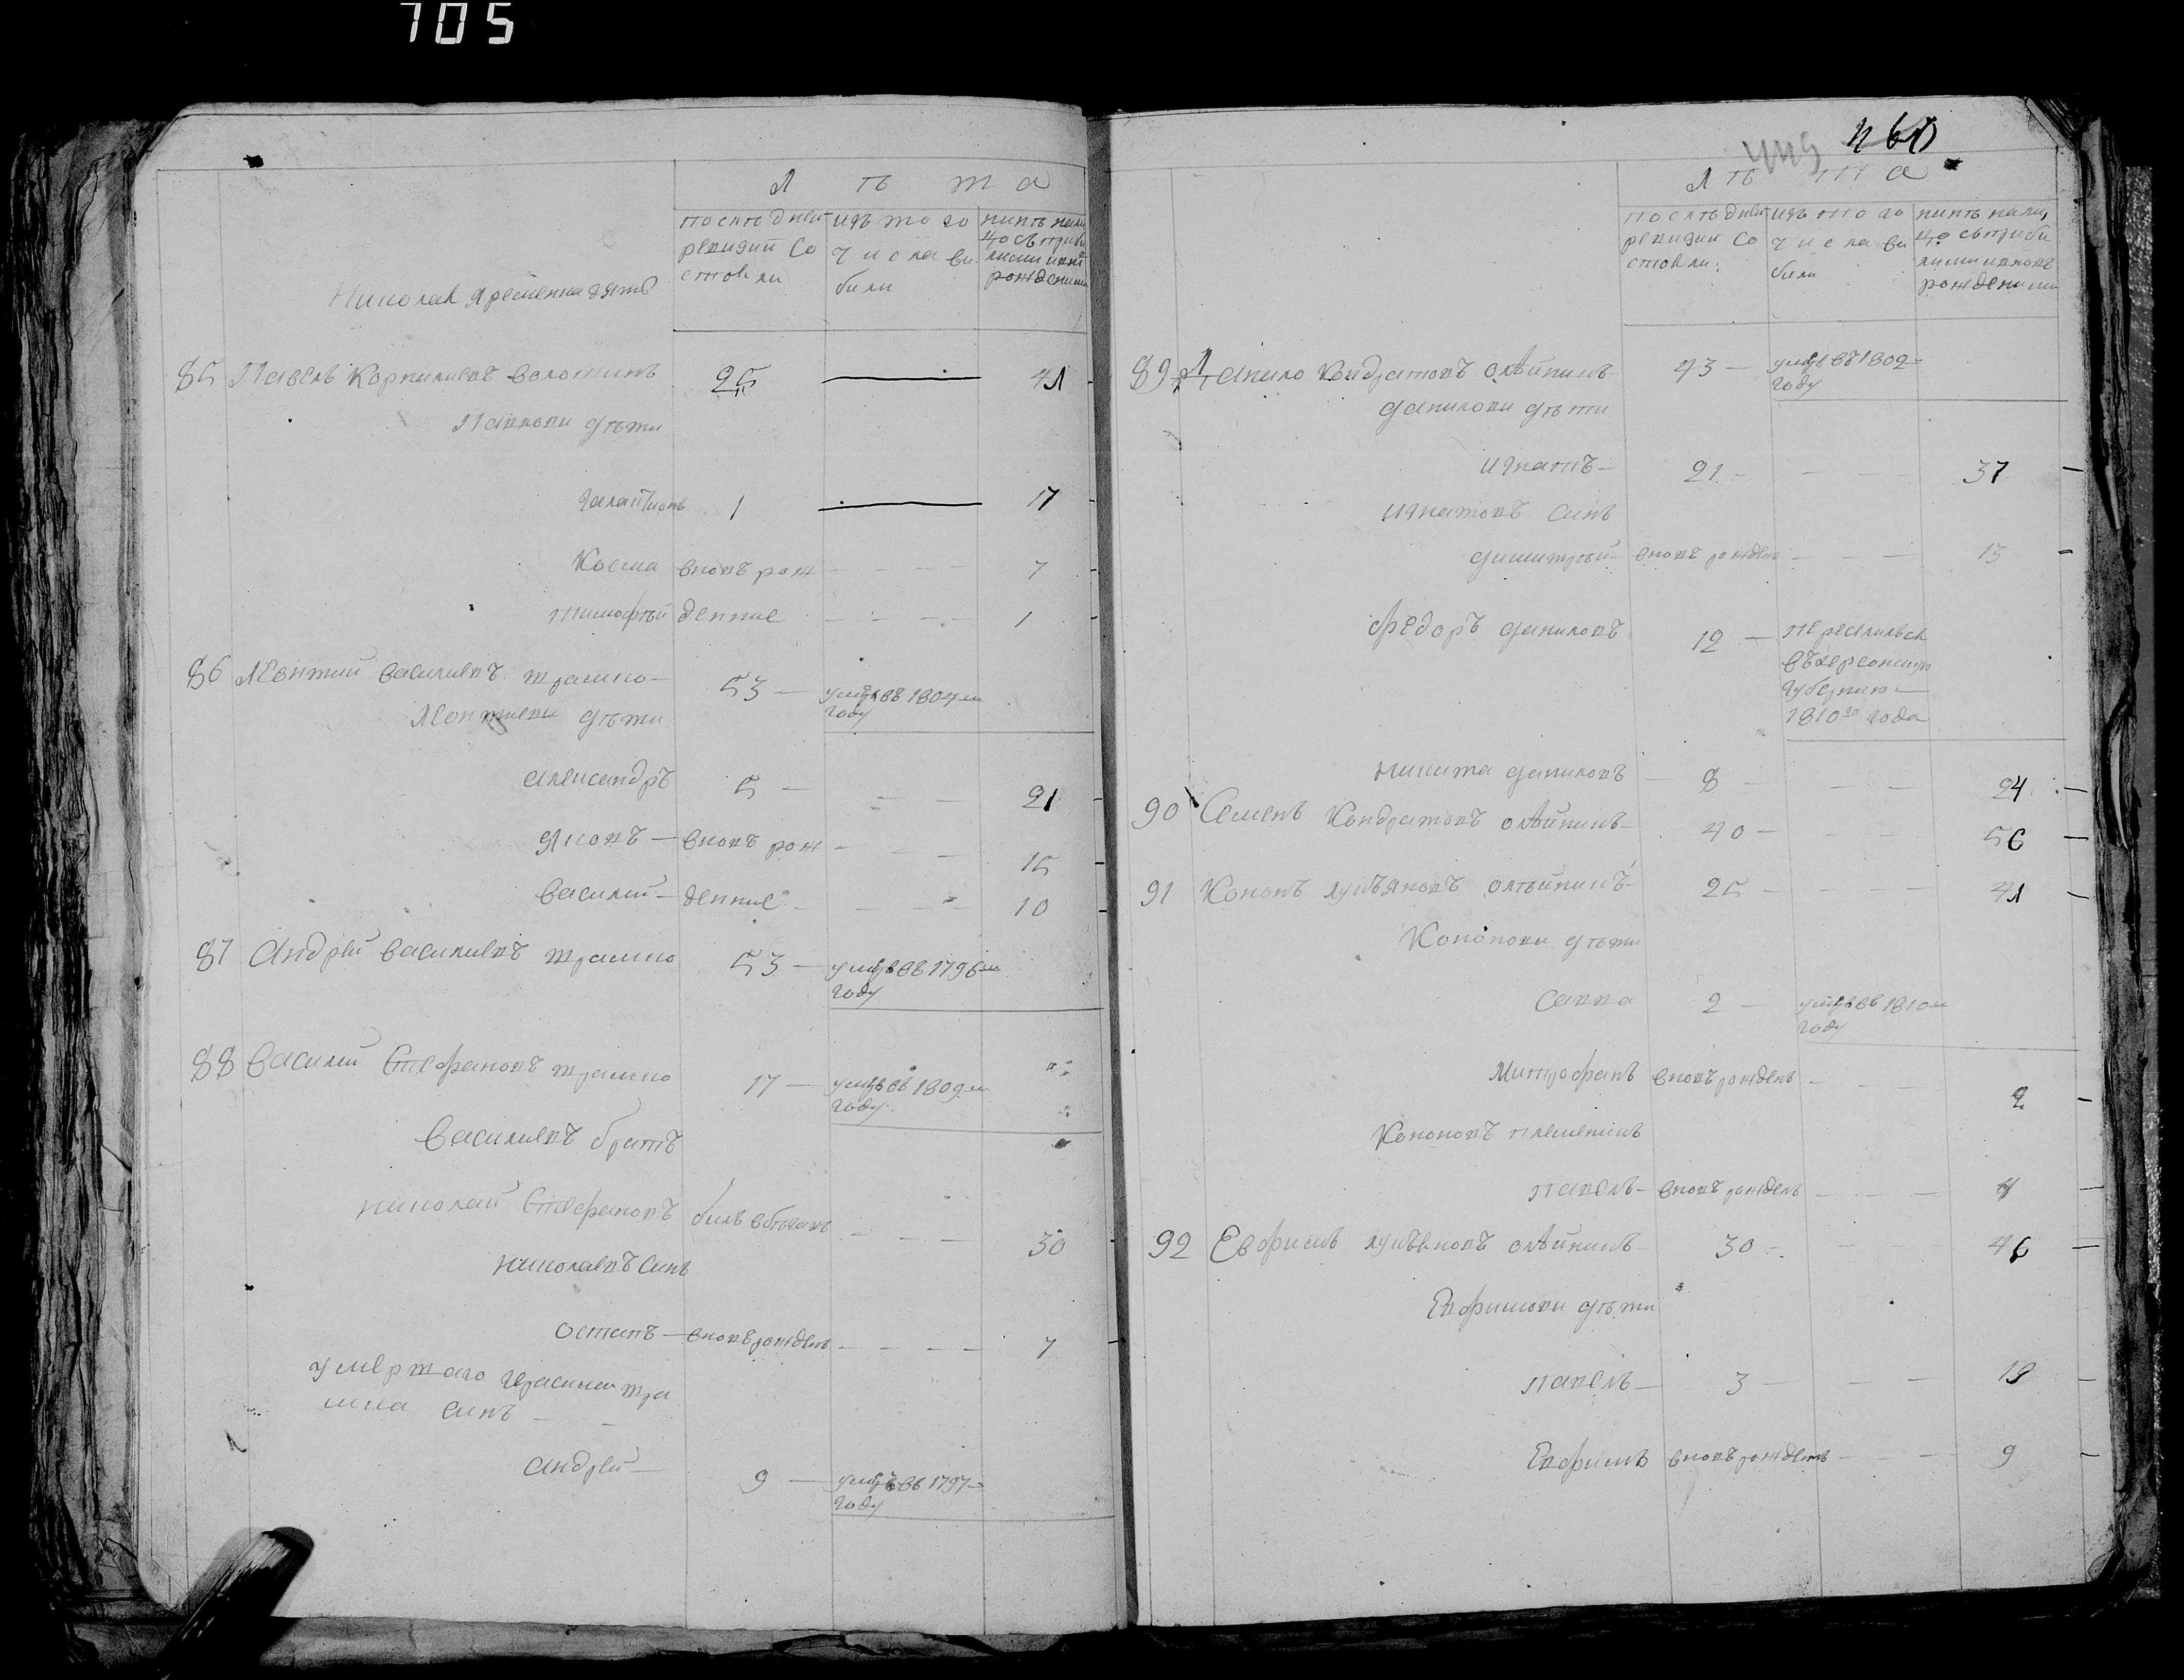 705
Л ѣ т а
последней ревизии состояли
изъ того числа выбыли
ныне налицо съ прибылыми и новорожденными
85 Павелъ Корнилиевъ Волошинъ 25 — 41
Павлови дѣти
Галактионъ 1 — 17
Косма вновь рож - - - 7
Тимофѣй денние - - - 1
86 Леонтий Василиевъ 53 — умрѣ въ 1804м году
Леонтиеви дѣти
Александръ 5 — - - 21
Яковъ — вновь рож - - - 15
Василий — денние - - - - 10
87 Андрей Василиевъ 53 — умрѣ въ 1796м году
88 Василий Стефановъ 17 — умрѣ въ 1809м году
Василиевъ братъ
Николай Стефановъ билъ въ бѣгахъ - - - 30
Николаевъ синъ
Остапъ — вновь рожденъ - - - - 7
умершаго Герасима
синъ - -
Андрей — 9 — умрѣ въ 1797м году
445 460
Л ѣ т а
последней ревизии состояли
изъ того числа выбыли
ныне налицо съ прибылыми и новорожденными
89 Данило Кондратовъ Олѣйникъ 43 — умрѣ въ 1802м году
Данилови дѣти
Игнатъ — 21 - - - - 37
Игнатовъ синъ
Димитрий — вновь рожденъ - - - 15
Федоръ Даниловъ 12 — переселился въ херсонскую губернию — 1810го года
Никита Даниловъ - 8 - - - 24
90 Семенъ Кондратовъ Олѣйникъ — 40 — - - 56
91 Кононъ Лукъяновъ Олѣйникъ — 25 — - - - 41
Кононови дѣти
Савва 2 — умрѣ въ 1810м году
Митрофанъ вновь рожденъ - - - 2
Кононовъ племеникъ
Павелъ — вновь рожденъ - - - 4
92 Евфимъ Лукъяновъ Олѣйникъ — 30 — - - - 46
Евфимови дѣти
Павелъ — 3 — - - 19
Евфимъ вновь рожденъ - - - 9